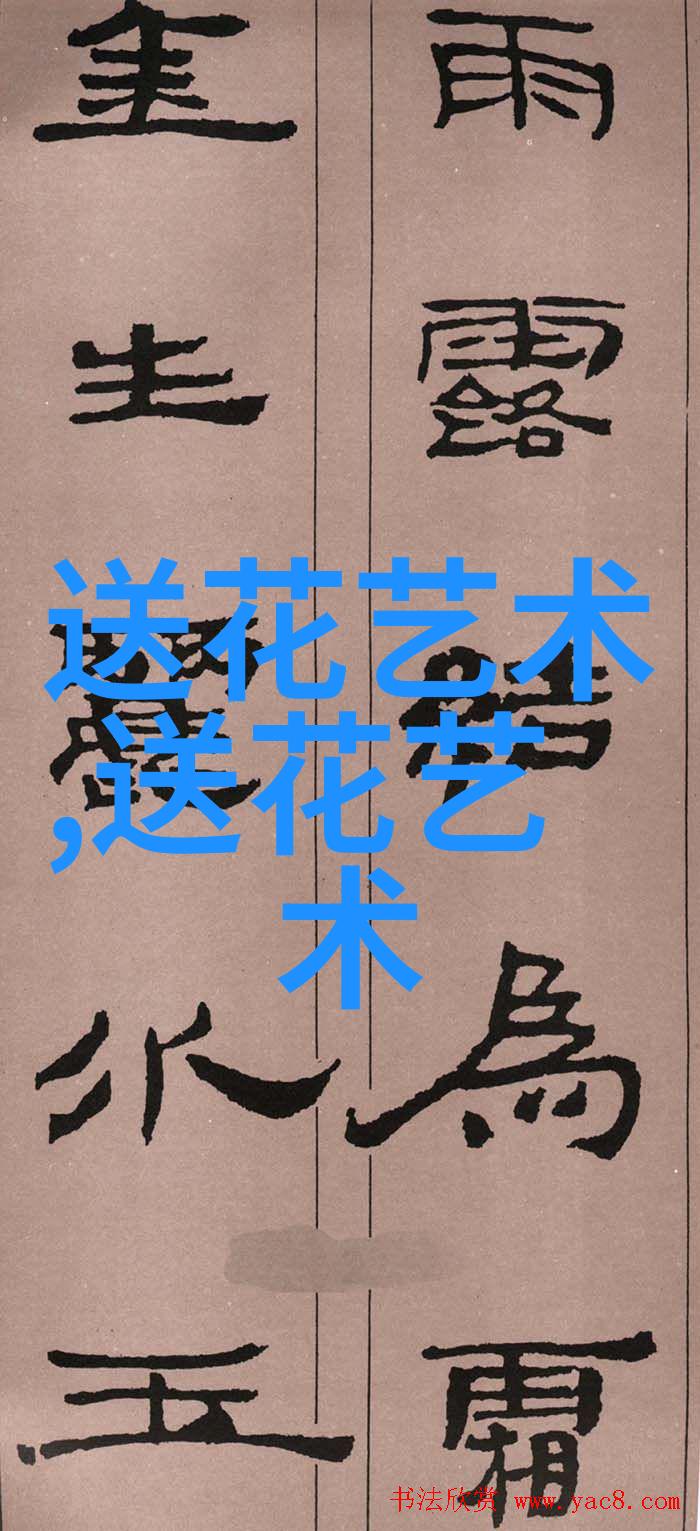 雨露結為霜
金生麗水玉
送花艺术
,送花艺
术
书法欣赏 www.yac8.com